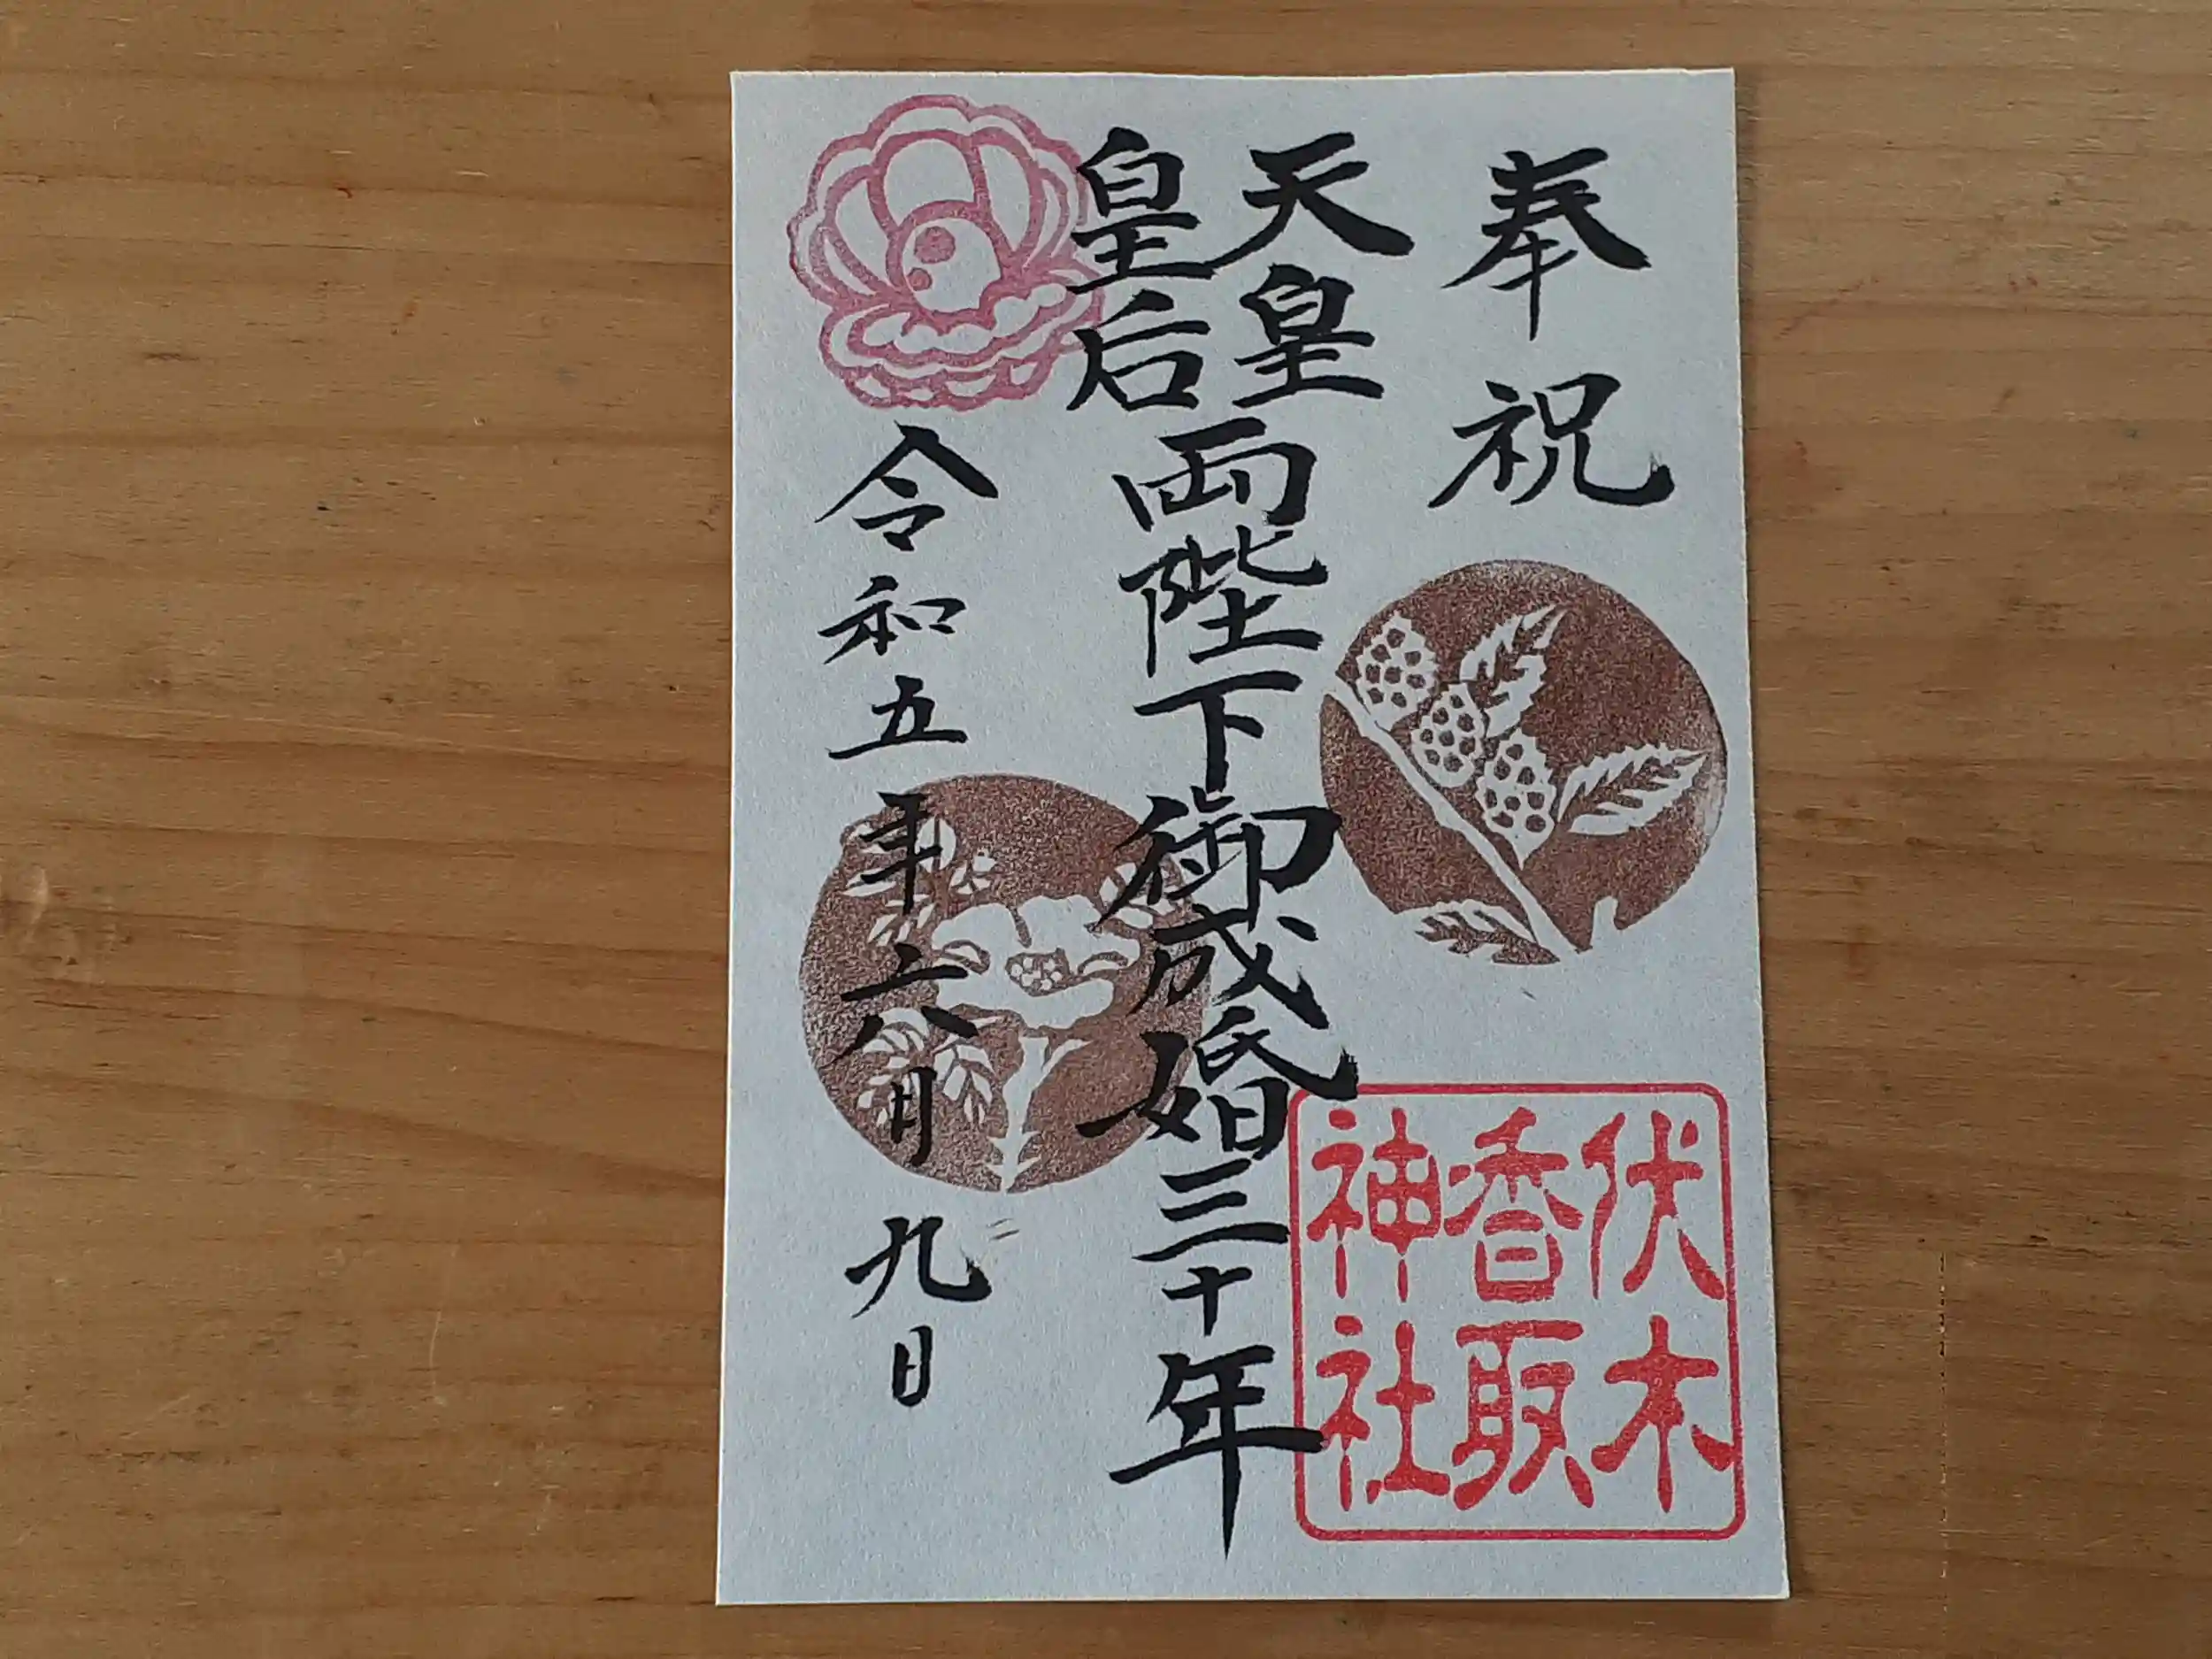 奉祝
天皇
皇后
両陛下御成婚三十年
伏木
香取
神社
令和五年六月九日